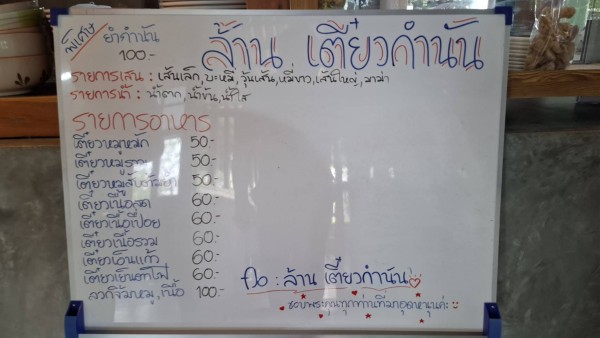 พิเศษ ยำกำนัน
100.-
ล้าน เตี๋ยวกำนัน
รายการเส้น : เส้นเล็ก, บะหมี่, วุ้นเส้น, หมี่ขาว, เส้นใหญ่, มาม่า
รายการน้ำ : น้ำตก, น้ำข้น, น้ำใส
รายการอาหาร
เตี๋ยวหมูหมัก 50.-
เตี๋ยวหมูรวม 50.-
เตี๋ยวหมูสับต้มยำ 50.-
เตี๋ยวเนื้อสด 60.-
เตี๋ยวเนื้อเปื่อย 60.-
เตี๋ยวเนื้อรวม 60.-
เตี๋ยวเอ็นแก้ว 60.-
เตี๋ยวเย็นตาโฟ 60.-
ลวกจิ้มหมู, เนื้อ 100.-
: ล้าน เตี๋ยวกำนัน
ขอบพระคุณทุกท่านที่มาอุดหนุนค่ะ